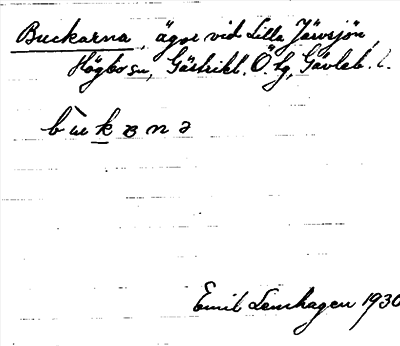 Buckarna, ägor vid Lilla Järvsjön,
Högbo sn, Gästrikl. Ö. tg, Gävleb. l.
b ù k ɐ n ə
Emil Lenhagen 1930